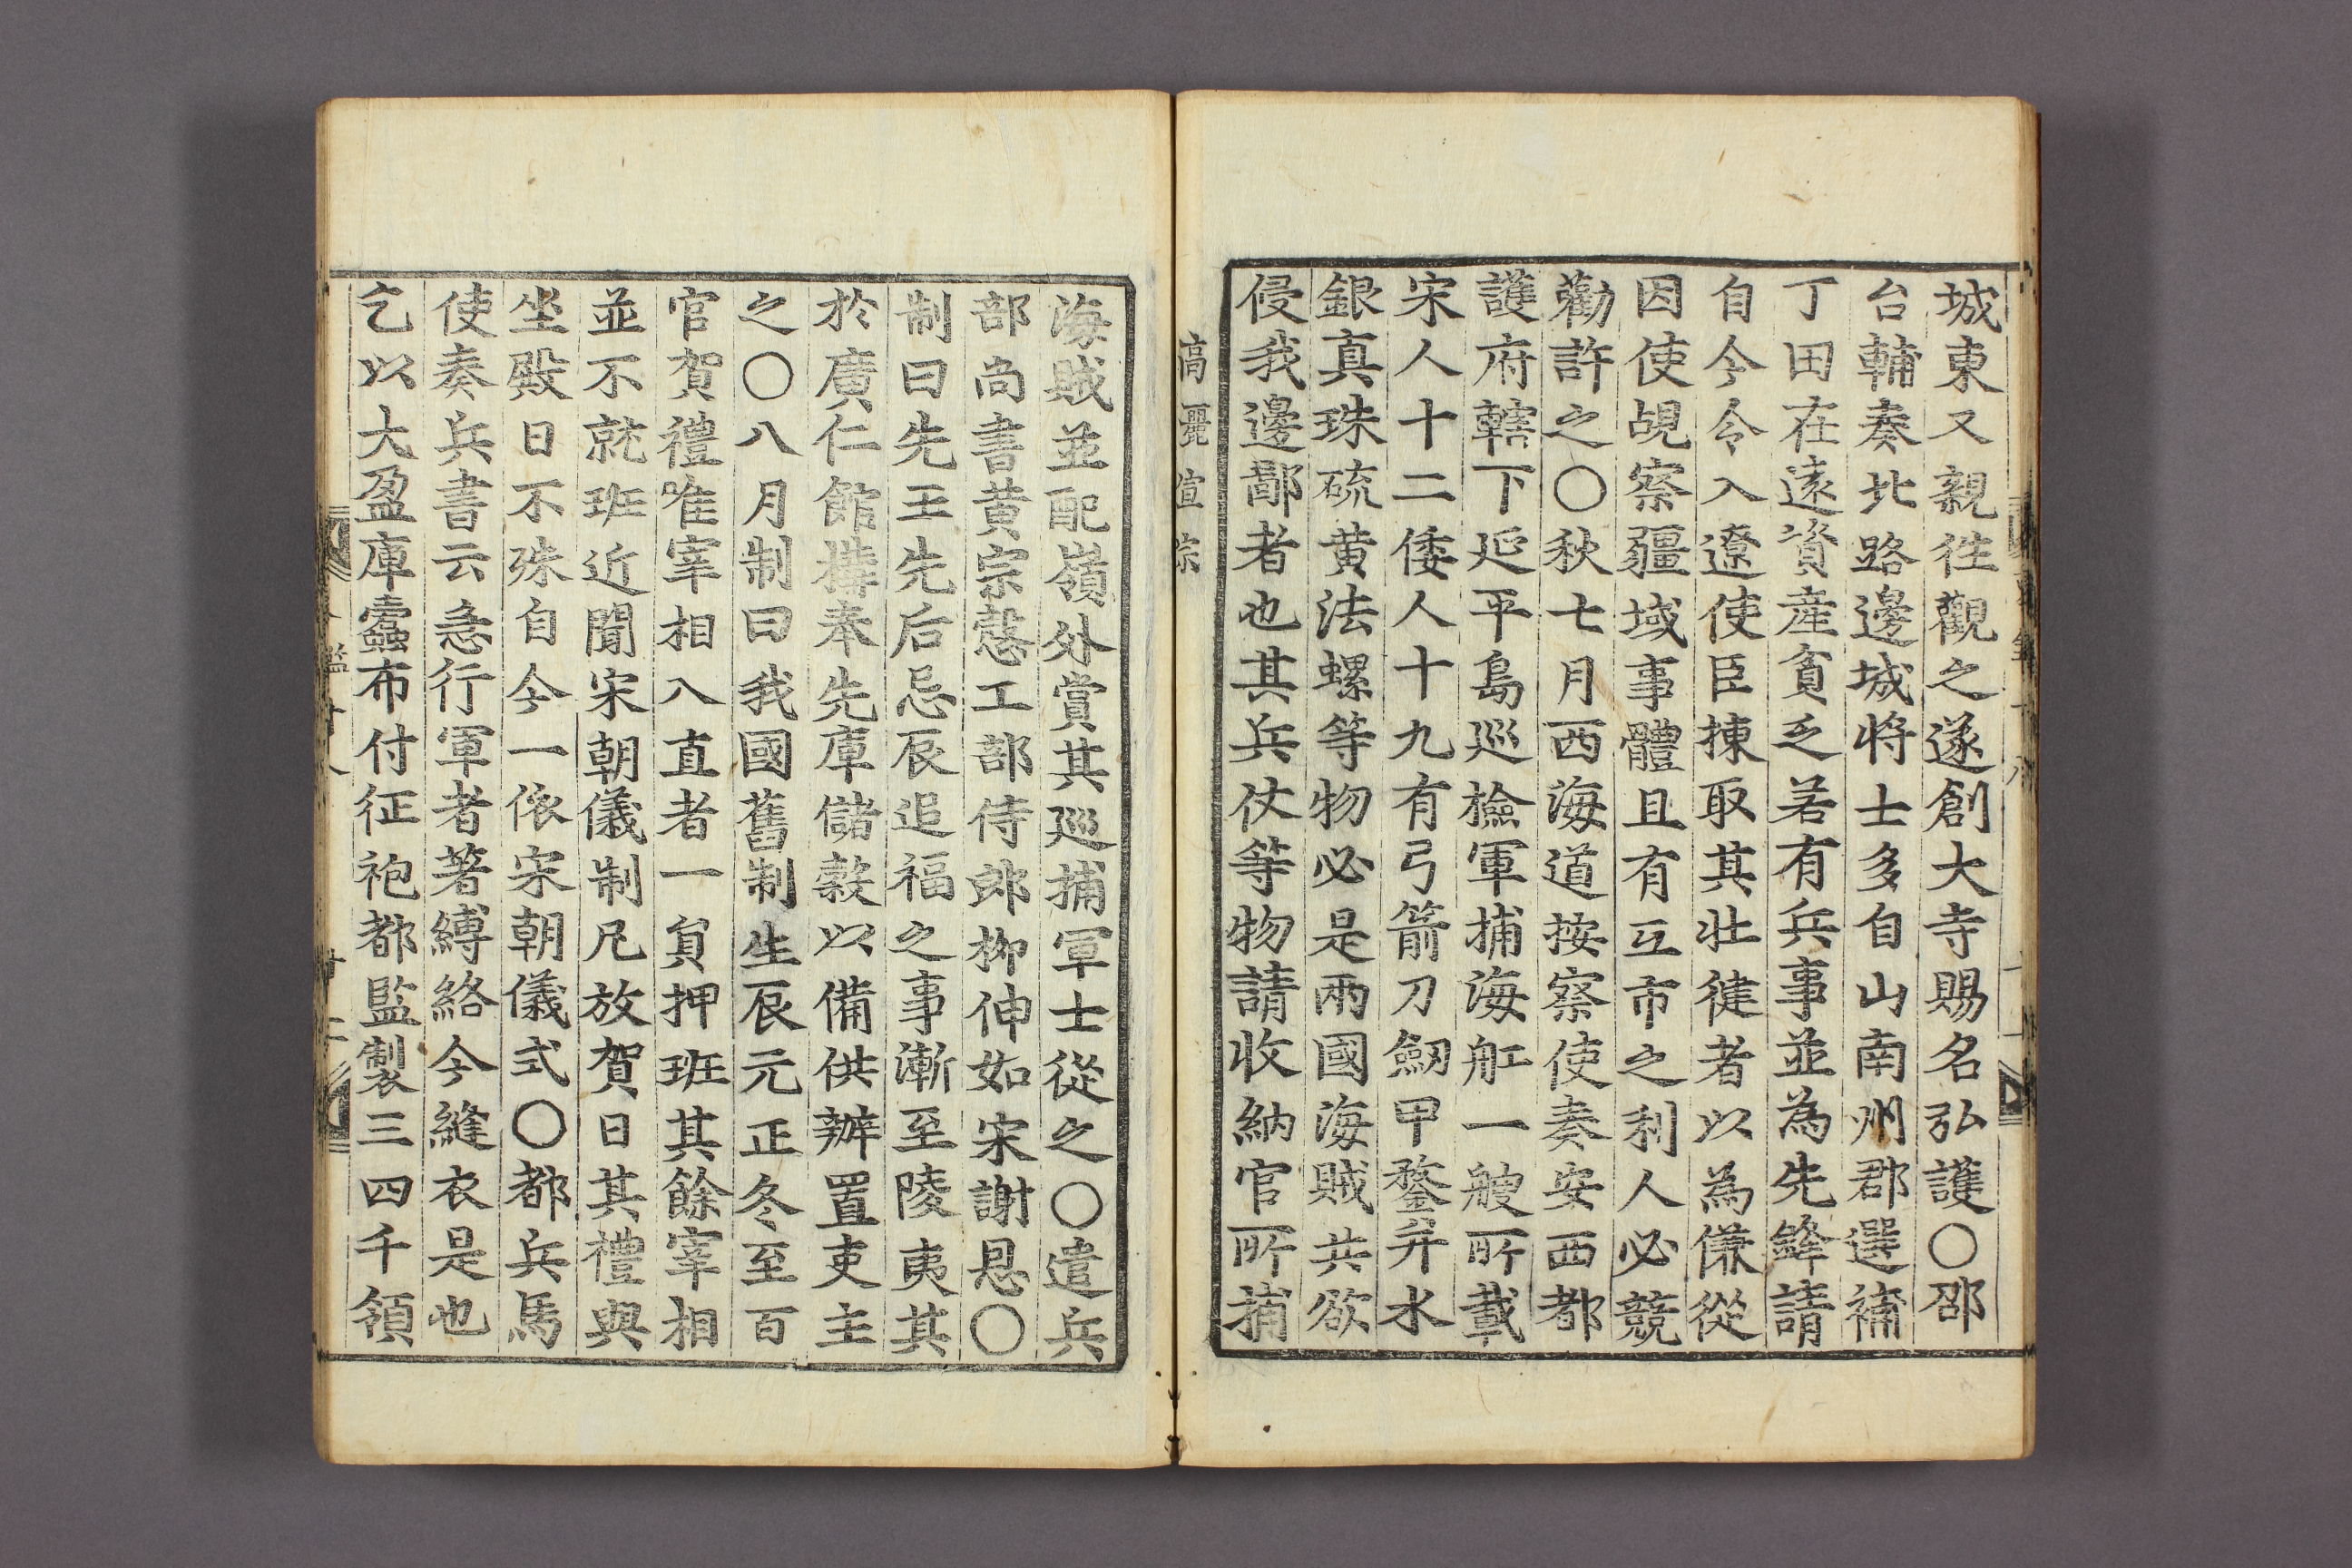 城東又親徃觀之遂創大寺賜名弘護〇邵
台輔奏北路邊城將士多自山南州郡選補
丁田在遠資産貧乏若有兵事並為先鋒請
自今令入遼使臣揀取其壯健者以為傔從
因使覘察疆域事體且有互市之利人必競
勸許之〇秋七月西海道按察使奏安西都
護府轄下延平島巡檢軍捕海舡一艘所載
宋人十二倭人十九有弓箭刀劒甲鍪并水
銀真珠硫黄法螺等物必是兩國海賊共欲
侵我邊鄙者也其兵仗等物請收納官所捕
高麗宣宗
海賊並配嶺外賞其巡捕軍士從之〇遣兵
部尚書黄宗慤工部侍郎柳伸如宋謝恩〇
制曰先王先后忌辰追福之事漸至陵夷其
於廣仁館搆奉先庫儲穀以備供辦置吏主
之〇八月制曰我國舊制生辰元正冬至百
官賀禮唯宰相入直者一負押班其餘宰相
並不就班近聞宋朝儀制凡放賀日其禮與
坐殿日不殊自今一依宋朝儀式〇都兵馬
使奏兵書云急行軍者著縛絡今縫衣是也
乞以大盈庫蠹布付征袍都監製三四千領